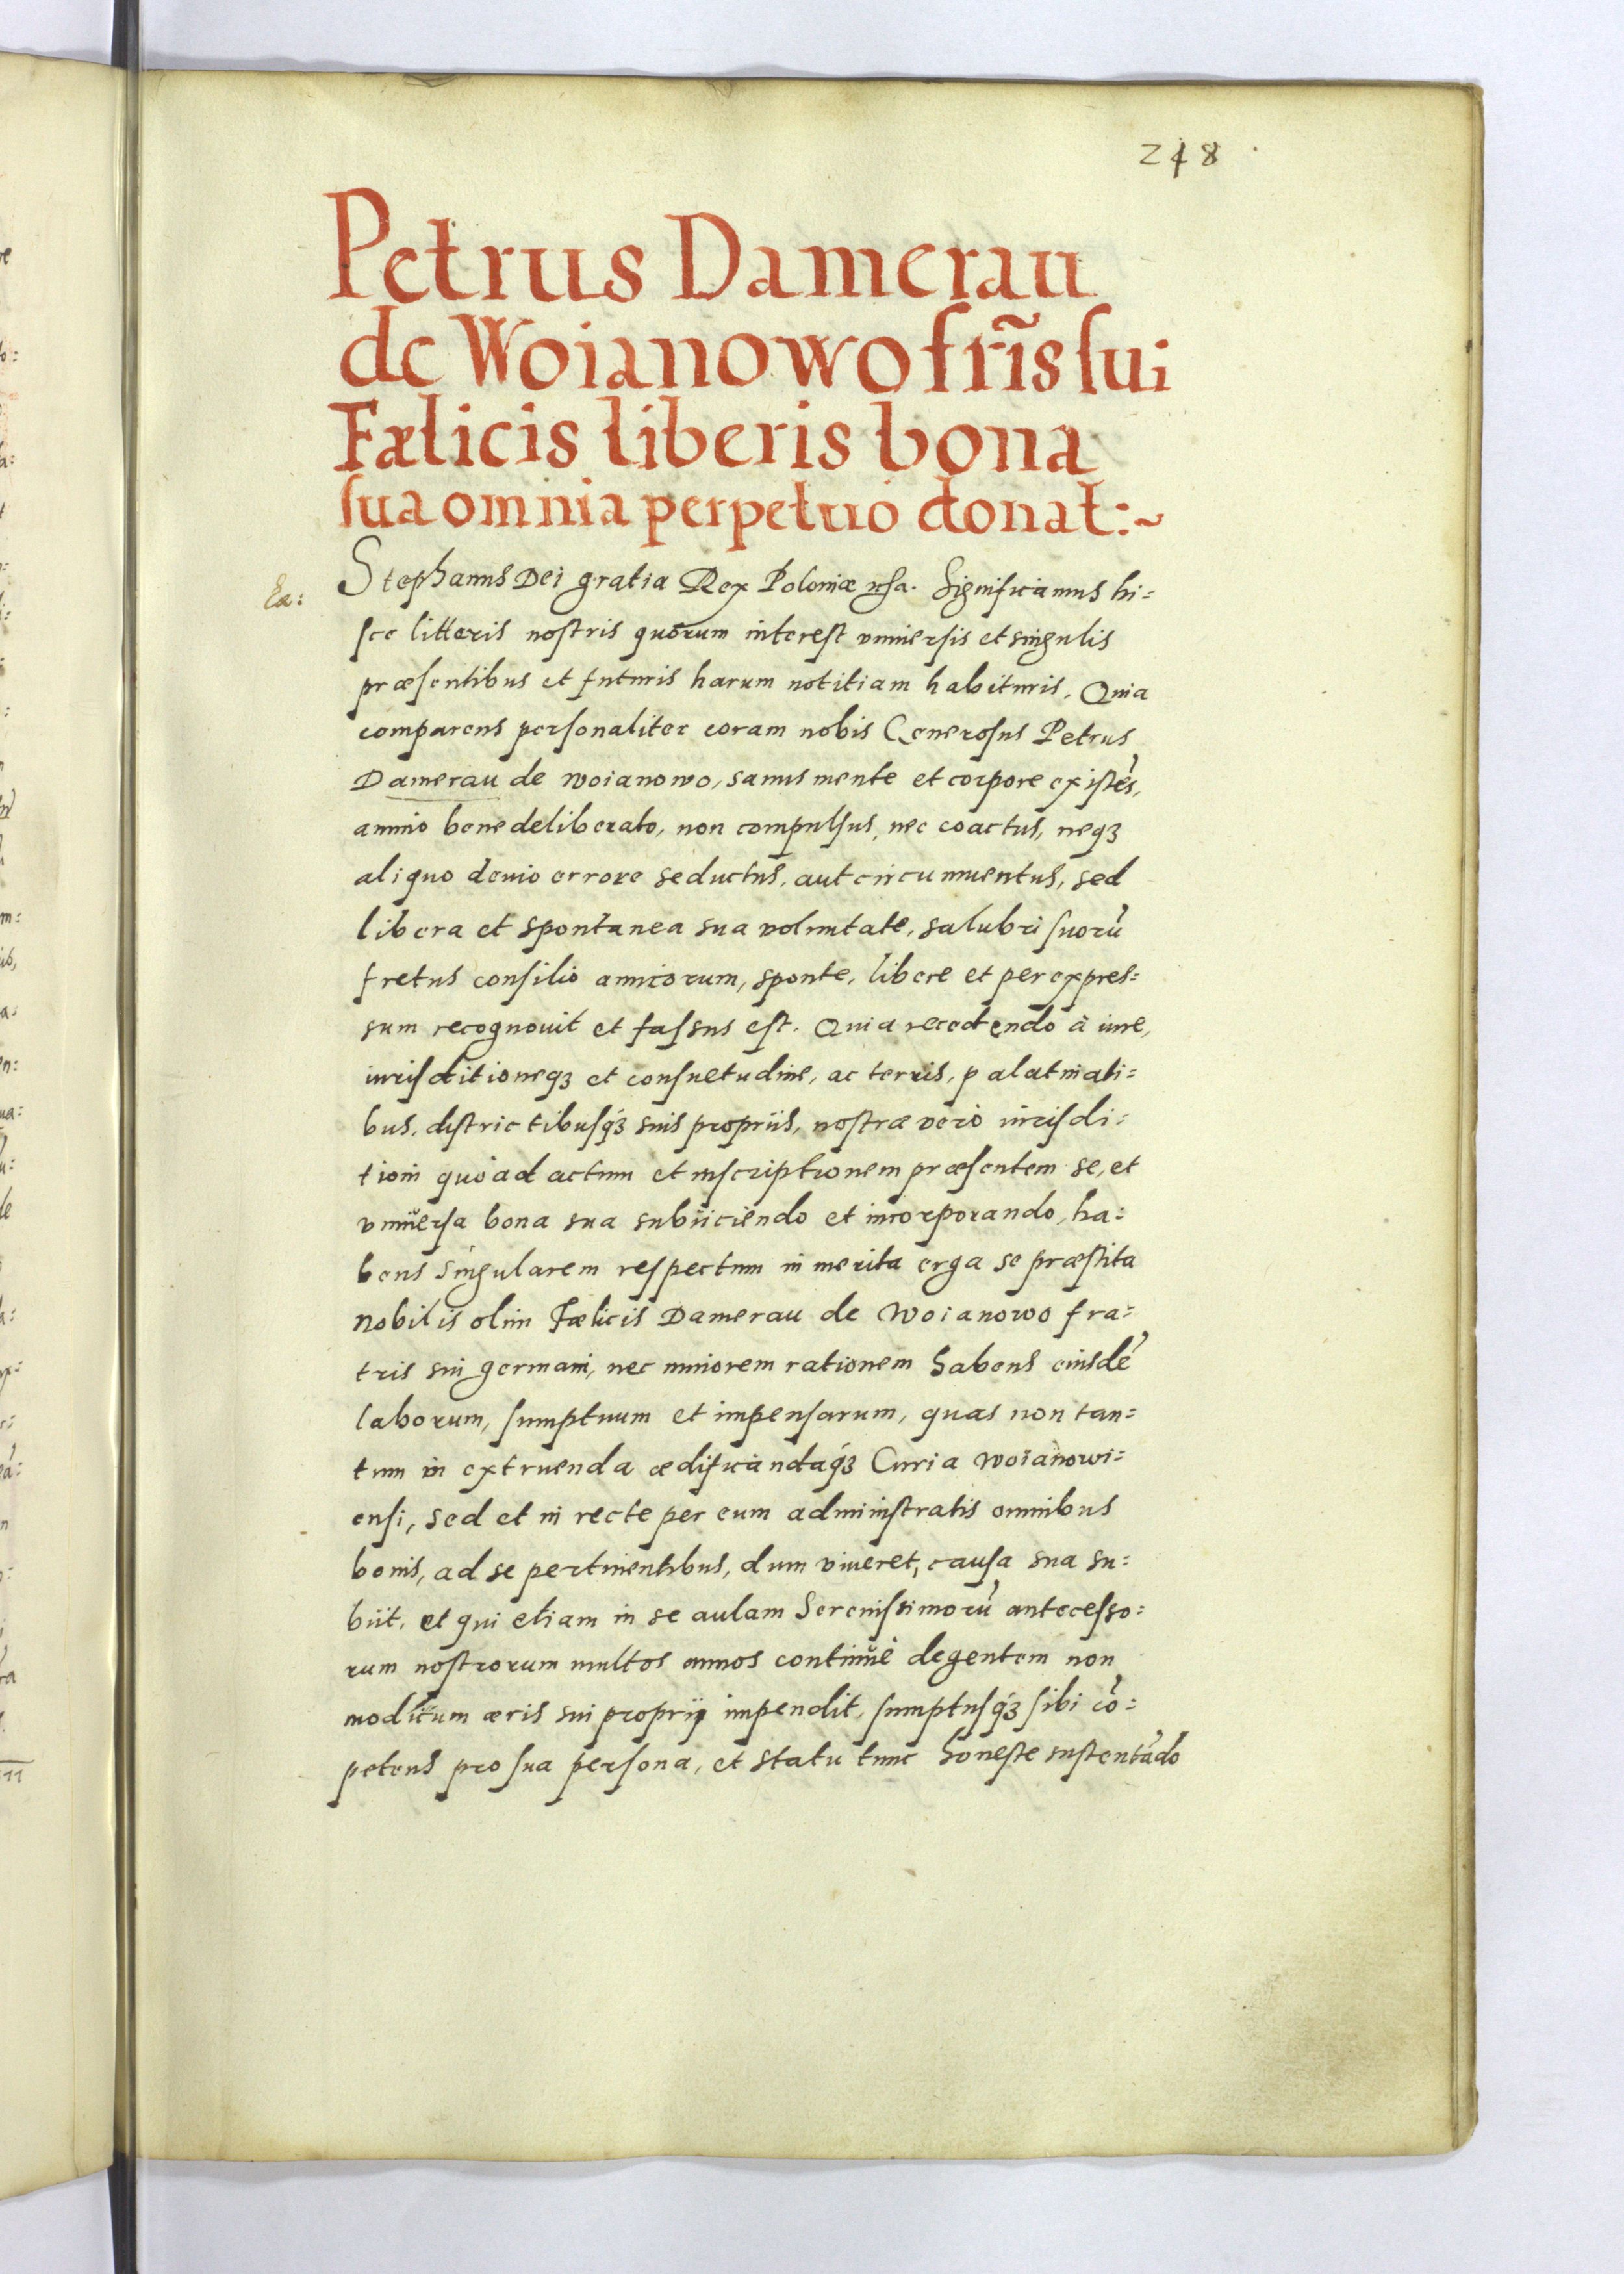 248
Petrus Damerau
de Woianowo fr̃is sui
Fælicis liberis bona
sua omnia perpetuo donat:~
Ea:
Stephanus Dei gratia Rex Poloniæ Significamus hi=
sce litteris nostris quorum interest vniuersis et singulis
præsentibus et futuris harum notitiam habituris. Quia
comparens personaliter coram nobis Generosus Petrus
Damerau de woianowo, sanus mente et corpore existēs,
animo bene deliberato, non compulsus, nec coactus, neqꝫ
aliquo deuio errore seductus, aut circumuentus, sed
libera et spontanea sua voluntate, salubri suorū
fretus consilio amicorum, sponte, libere et per expres=
sum recognouit et fassus est. Quia recedendo à iure,
iurisditioneqꝫ et consuetudine, ac terris, palatinati=
bus, districtibusqꝫ suis propriis, nostræ verò iurisdi=
tioni quò ad actum et inscriptionem præsentem se, et
vniuersa bona sua subiiciendo et incorporando, ha=
bens singularem respectum in merita erga se præstita
nobilis olim Fælicis Damerau de Woianowo fra=
tris sui germani, nec minorem rationem habens eiusdē
laborum, sumptuum et impensarum, quas non tan=
tum in extruenda ædificandaqꝫ Curia woianowi=
ensi, sed et in recte per eum administratis omnibus
bonis, ad se pertinentibus, dum viueret, causa sua su=
biit, et qui etiam in se aulam Serenissimorū antecesso=
rum nostrorum multos annos continuè degentem non
modicum æris sui proprij impendit, sumptusqꝫ sibi cō=
petens pro sua persona, et statu tunc honeste sustentādo